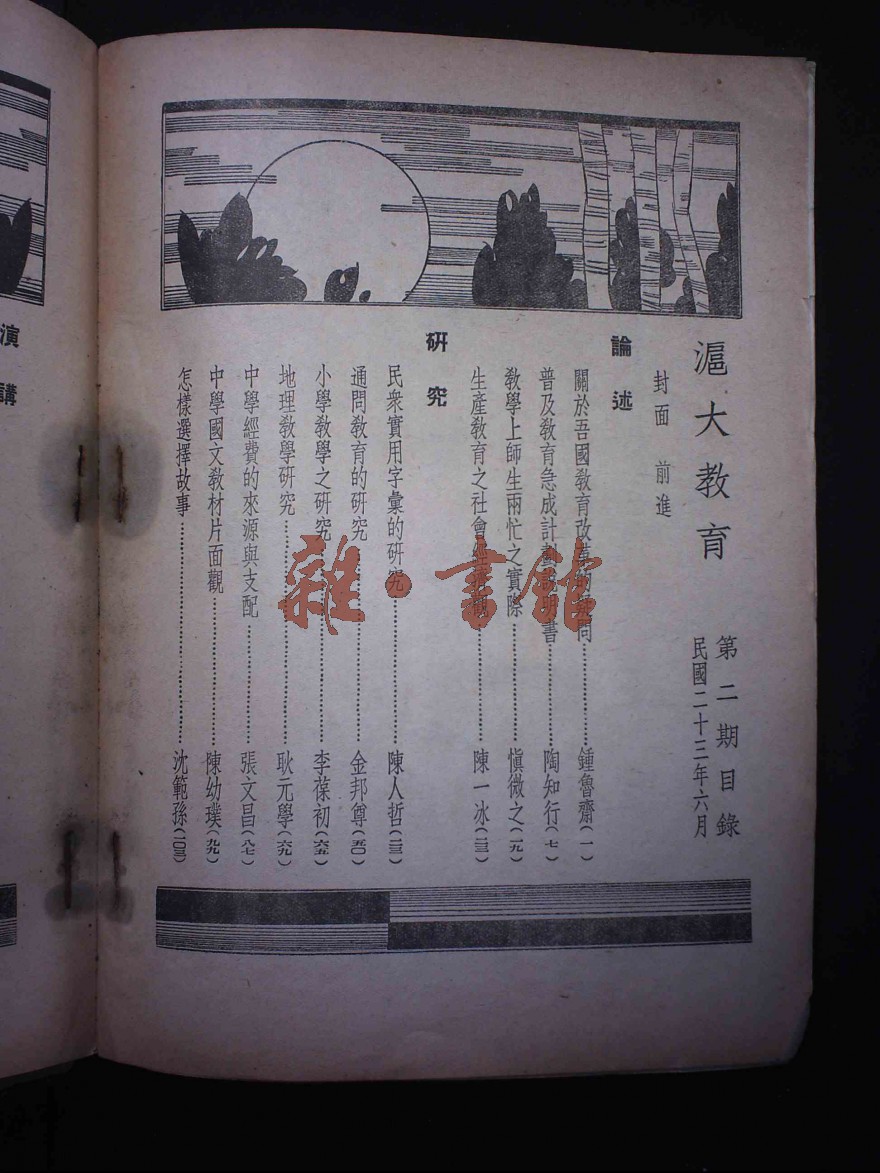 滬大教育
第二期目錄
民國二十三年六月
封面 前進
論述
關於吾國教育改革的疑問……鍾魯齋(一)
普及教育急成計劃說明書……陶知行(七)
教學上師生兩忙之實際……愼微之(一九)
生產教育之社會經濟觀……陳一冰(二三)
研究
民衆實用字彙的研究……陳人哲
通問教育的研究……金邦尊(五〇)
小學教學之研究……李葆初(六五)
地理教學研究……耿元學(六九)
中學經費的來源與支配……張文昌(八七)
中學國文教材片面觀……陳幼璞(九九)
怎樣選擇故事……沈範孫(一〇三)
演講
雜·書館